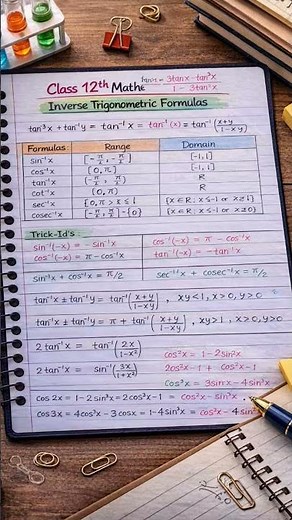 Class 12th Mathe
tan²x = 3tanx - tan³x / 1 - 3tan²x
Inverse Trigonometric Formulas
tan³x + tan⁻¹y = tan⁻¹x = tan⁻¹(x) = tan⁻¹(x+y / 1-xy)
Formulas Range Domain
sin⁻¹x [-π/2, -π/2] [-1, 1]
cos⁻¹x [0, π) [-1, 1]
tan⁻¹x (-π/2, π/2) R
cot⁻¹x (0, π) R
sec⁻¹x {0, π > x ≤ 1 {x ∈ R : x ≤ -1 or x ≥ 1}
cosec⁻¹x [-π/2, π/2] - {0} {x ∈ R : x ≤ -1 or x ≥ 0}
Trick-Id's :
sin⁻¹(-x) = - sin⁻¹x cos⁻¹(-x) = π - cos⁻¹x
cos⁻¹(-x) = π - cos⁻¹x tan⁻¹(-x) = - tan⁻¹x
sin⁻¹x + cos⁻¹x = π/2 sec⁻¹x + cosec⁻¹x = π/2
tan⁻¹x ± tan⁻¹y = tan⁻¹(x+y / 1-xy) , xy < 1, x > 0, y > 0
tan⁻¹x ± tan⁻¹y = π + tan⁻¹(x+y / 1-xy) , xy > 1 , x > 0, y > 0
2 tan⁻¹x = tan⁻¹(2x / 1-x²) cos²x = 1 - 2sin²x
2cos²x - 1 + cos²x - 1
2 tan⁻¹x = sin⁻¹(3x / 1+x²)
Cos³x = 3sinx - 4sin³x
cos 2x = 1 - 2 sin²x = 2cos²x - 1 = cos²x - sin²x
cos 3x = 4cos³x - 3cosx = 1 - 4sin³x = cos²x - 4 sin